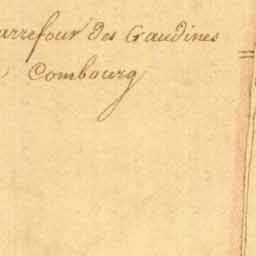 arrefour des Gaudines
Combourg